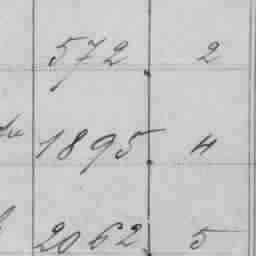 572. 2
1895. 4
2062. 5